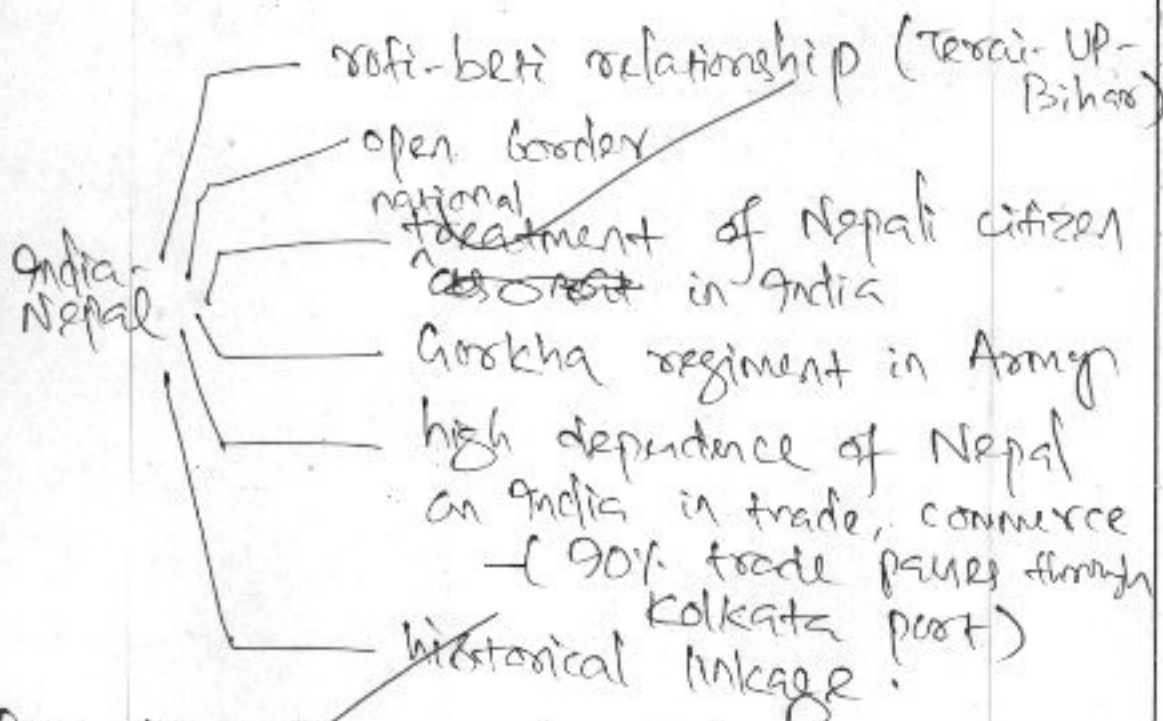 roti-beti relationship (Terai-UP-
Bihar)
open border
national
treatment of Nepali citizen
in India
India-
Nepal
Gorkha regiment in Army
high dependence of Nepal
on India in trade, commerce
(90% trade passes through
Kolkata port)
historical linkage.